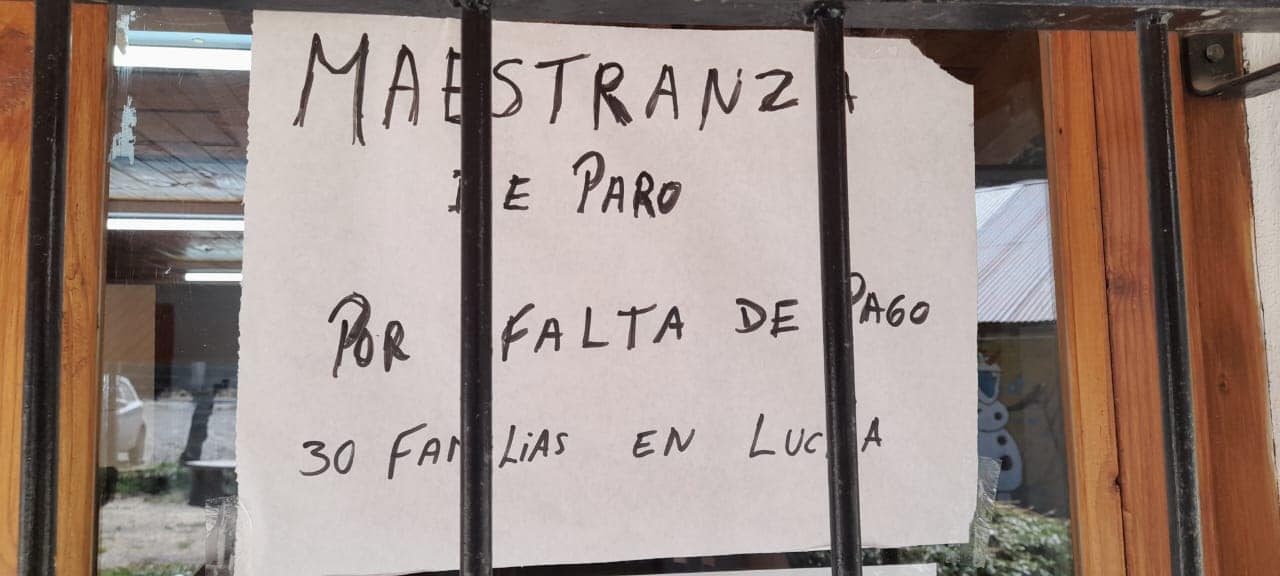 MAESTRANZA
DE PARO
POR FALTA DE PAGO
30 FAMiLiAS EN LUCHA